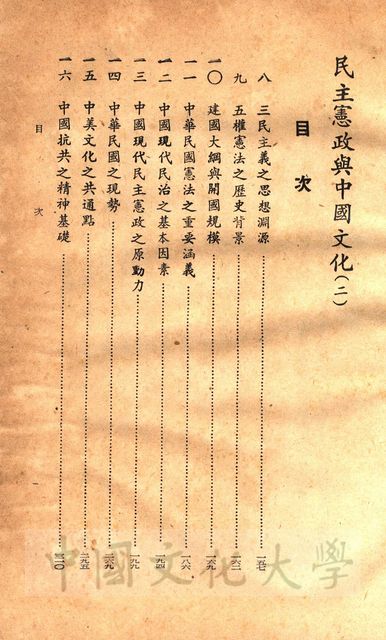 民主憲政與中國文化(二)
目次
八 三民主義之思想淵源 一五七
九 五權憲法之歷史背景 一六二
一〇 建國大綱與開國規模 一六九
一一 中華民國憲法之重要涵義 一八六
一二 中國現代民治之基本因素 一九四
一三 中國現代民主憲政之原動力 一九九
一四 中華民國之現勢
一五 中美文化之共通點
一六 中國抗共之精神基礎
目次
中國文化大學